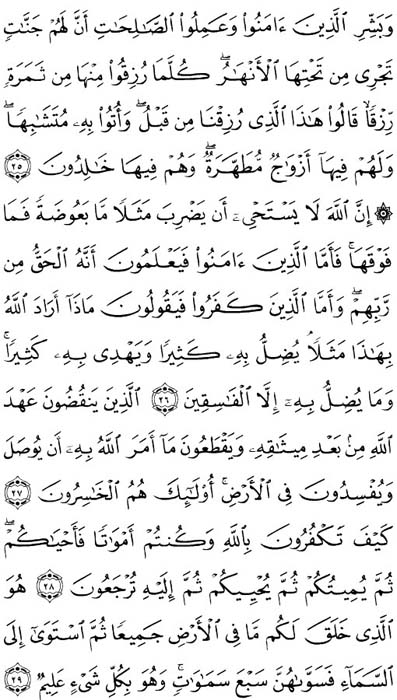 وَبَشِّرِ الَّذِينَ ءَامَنُوا۟ وَعَمِلُوا۟ الصَّـٰلِحَـٰتِ أَنَّ لَهُمْ جَنَّـٰتٍ
تَجْرِى مِن تَحْتِهَا الْأَنْهَـٰرُ ۖ كُلَّمَا رُزِقُوا۟ مِنْهَا مِن ثَمَرَةٍ
رِّزْقًا ۙ قَالُوا۟ هَـٰذَا الَّذِى رُزِقْنَا مِن قَبْلُ ۖ وَأُتُوا۟ بِهِۦ مُتَشَـٰبِهًا ۖ
وَلَهُمْ فِيهَآ أَزْوَٰجٌ مُّطَهَّرَةٌ ۖ وَهُمْ فِيهَا خَـٰلِدُونَ ٢٥
۞ إِنَّ اللَّهَ لَا يَسْتَحْىِۦٓ أَن يَضْرِبَ مَثَلًا مَّا بَعُوضَةً فَمَا
فَوْقَهَا ۚ فَأَمَّا الَّذِينَ ءَامَنُوا۟ فَيَعْلَمُونَ أَنَّهُ الْحَقُّ مِن
رَّبِّهِمْ ۖ وَأَمَّا الَّذِينَ كَفَرُوا۟ فَيَقُولُونَ مَاذَآ أَرَادَ اللَّهُ
بِهَـٰذَا مَثَلًا ۘ يُضِلُّ بِهِۦ كَثِيرًا وَيَهْدِى بِهِۦ كَثِيرًا ۚ
وَمَا يُضِلُّ بِهِۦٓ إِلَّا الْفَـٰسِقِينَ ٢٦ الَّذِينَ يَنقُضُونَ عَهْدَ
اللَّهِ مِنۢ بَعْدِ مِيثَـٰقِهِۦ وَيَقْطَعُونَ مَآ أَمَرَ اللَّهُ بِهِۦٓ أَن يُوصَلَ
وَيُفْسِدُونَ فِى الْأَرْضِ ۚ أُو۟لَـٰٓئِكَ هُمُ الْخَـٰسِرُونَ ٢٧
كَيْفَ تَكْفُرُونَ بِاللَّهِ وَكُنتُمْ أَمْوَٰتًا فَأَحْيَـٰكُمْ ۖ
ثُمَّ يُمِيتُكُمْ ثُمَّ يُحْيِيكُمْ ثُمَّ إِلَيْهِ تُرْجَعُونَ ٢٨ هُوَ
الَّذِى خَلَقَ لَكُم مَّا فِى الْأَرْضِ جَمِيعًا ثُمَّ اسْتَوَىٰٓ إِلَى
السَّمَآءِ فَسَوَّىٰهُنَّ سَبْعَ سَمَـٰوَٰتٍ ۚ وَهُوَ بِكُلِّ شَىْءٍ عَلِيمٌ ٢٩